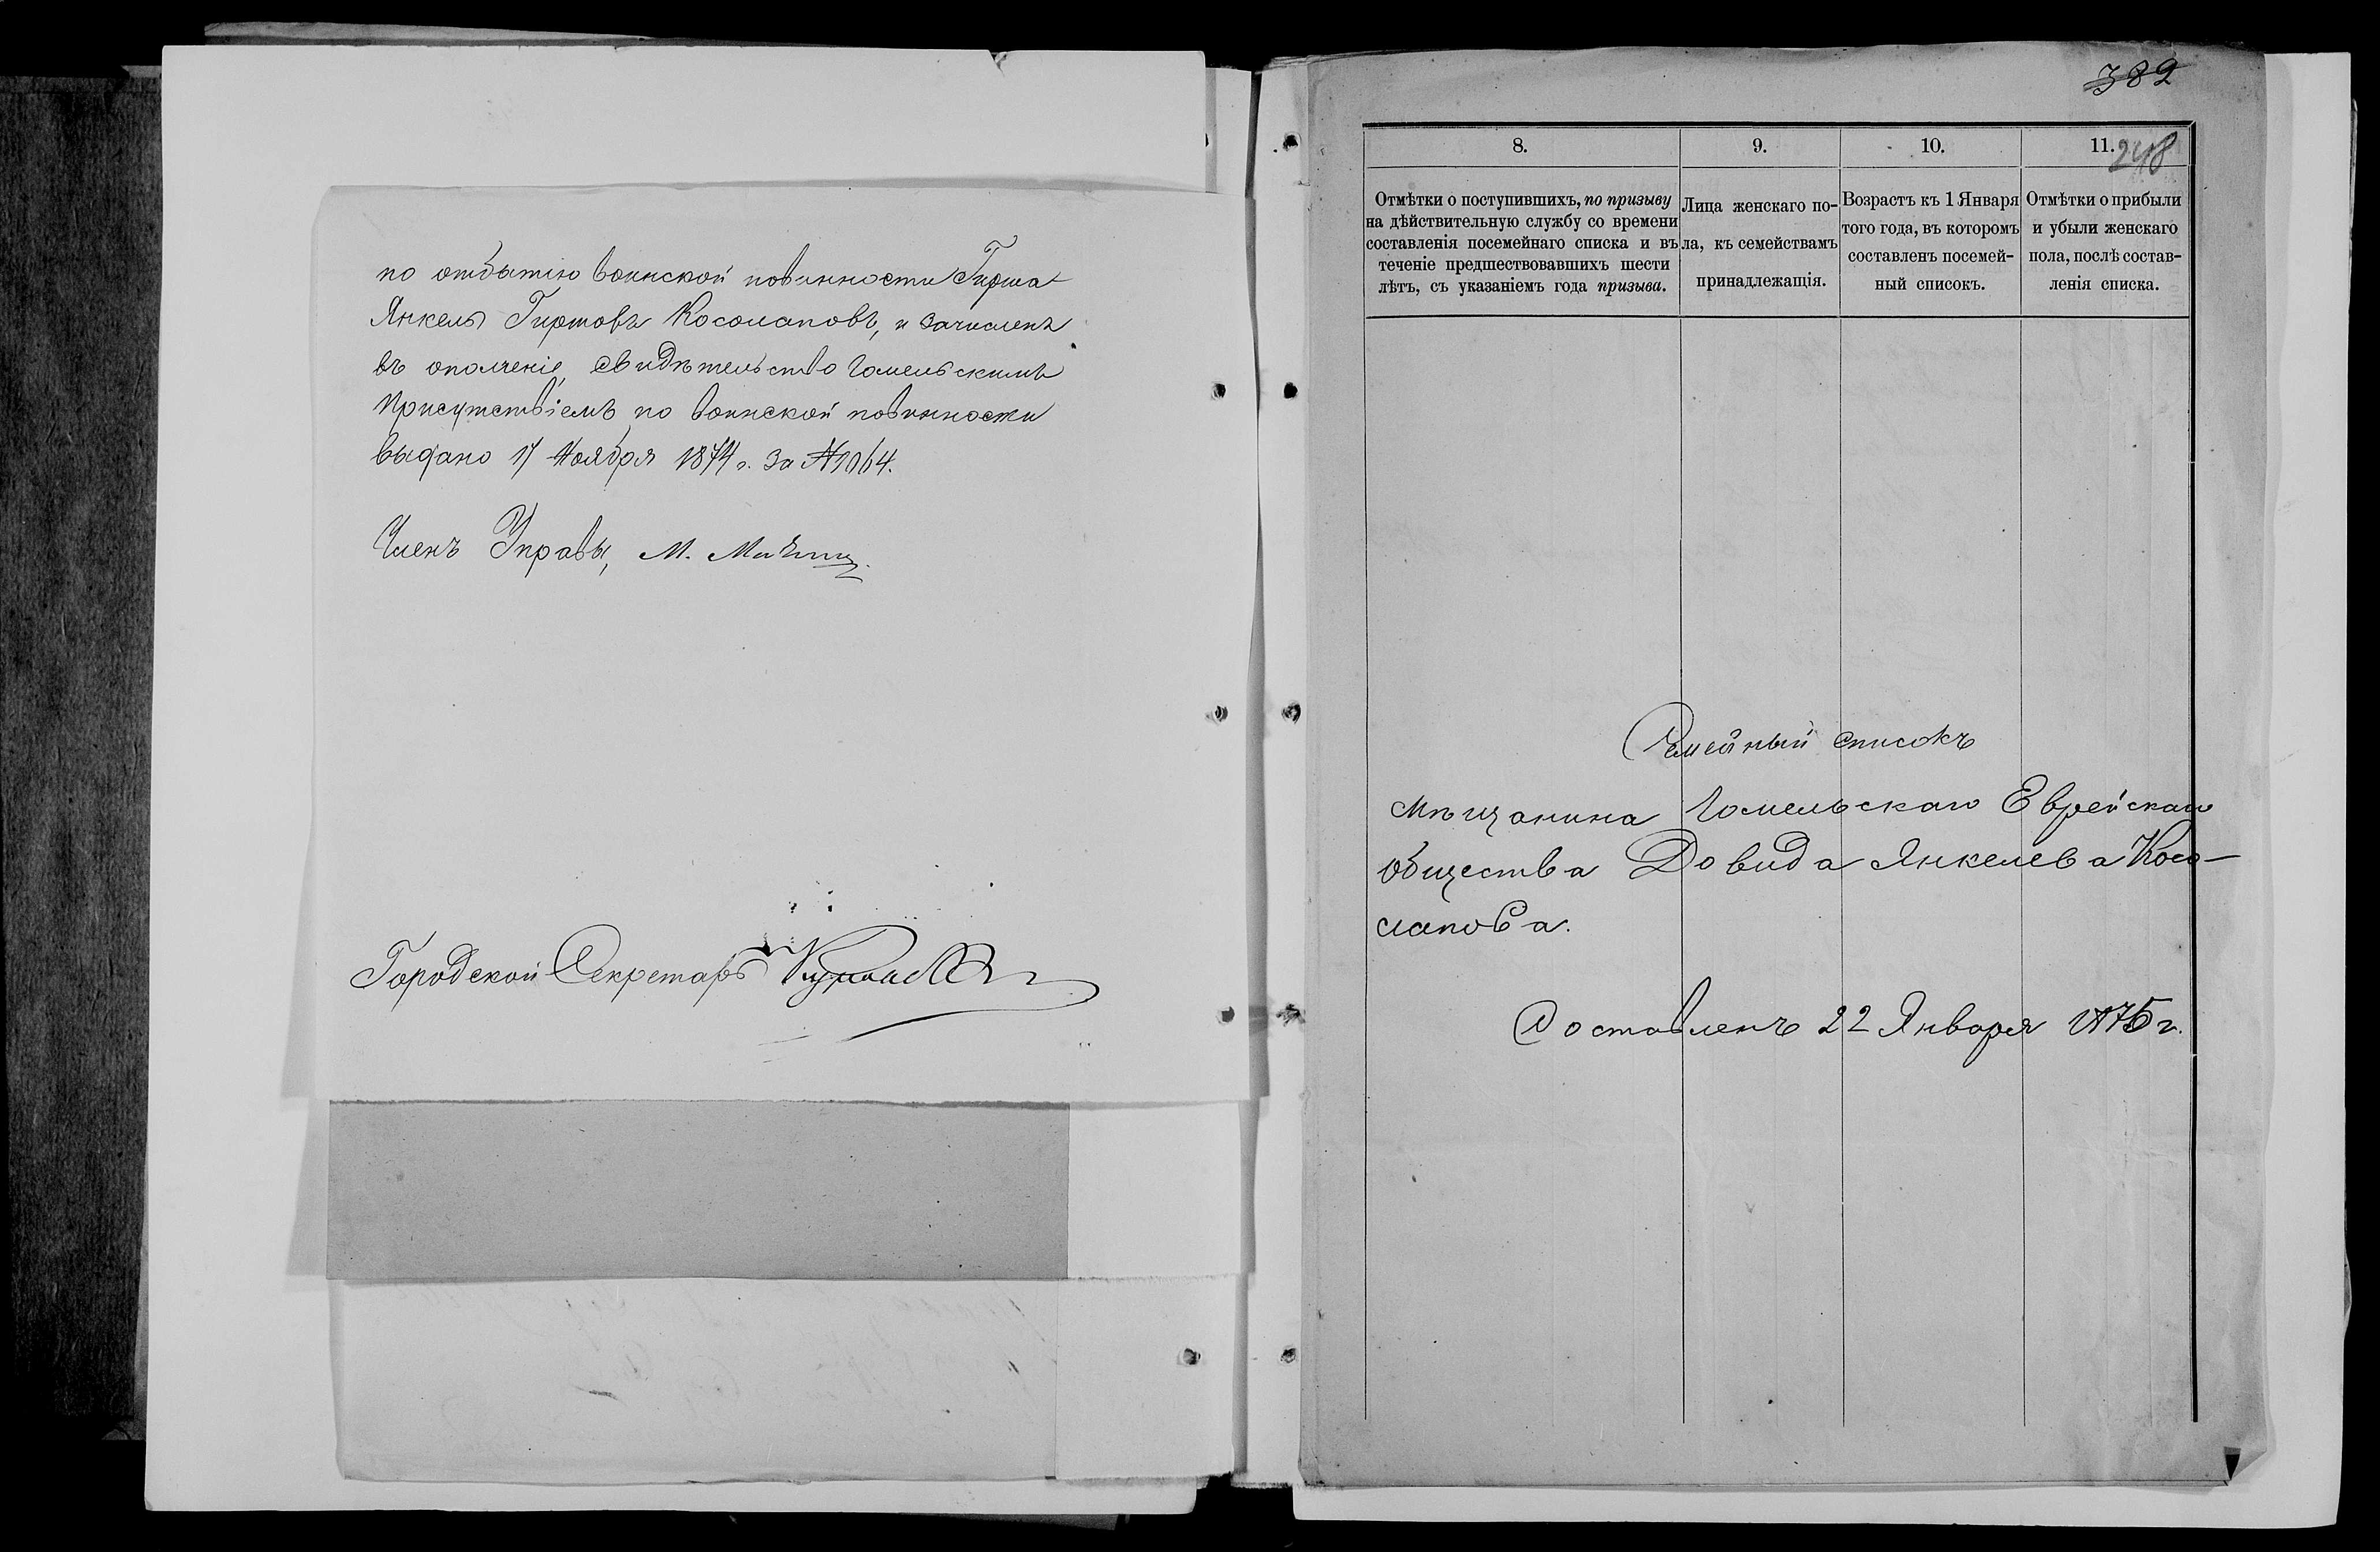 по отбытію воинской повинности Гирша
Янкель Гиршовъ Косолаповъ, и зачисленъ
въ ополченіе, свидѣтельство Гомельскимъ
Присутствіемъ по воинской повинности
выдано 17 Ноября 1874 г. за №1064.
Членъ Управы, М.
Городской Секретарь
382
248
8.
9.
10.
11.
Отмѣтки о поступившихъ, по призыву
на дѣйствительную службу со времени
составленія посемейнаго списка и въ
теченіе предшествовавшихъ шести
лѣтъ, съ указаніемъ года призыва.
Лица женскаго по-
ла, къ семействамъ
принадлежащія.
Возрастъ къ 1 Января
того года, въ которомъ
составленъ посемей-
ный списокъ.
Отмѣтки о прибыли
и убыли женскаго
пола, послѣ состав-
ленія списка.
Семейный списокъ
Мѣщанина Гомельскаго Еврейскаго
общества Довида Янкелева Косо-
лапова.
Составленъ 22 Января 1875 г.